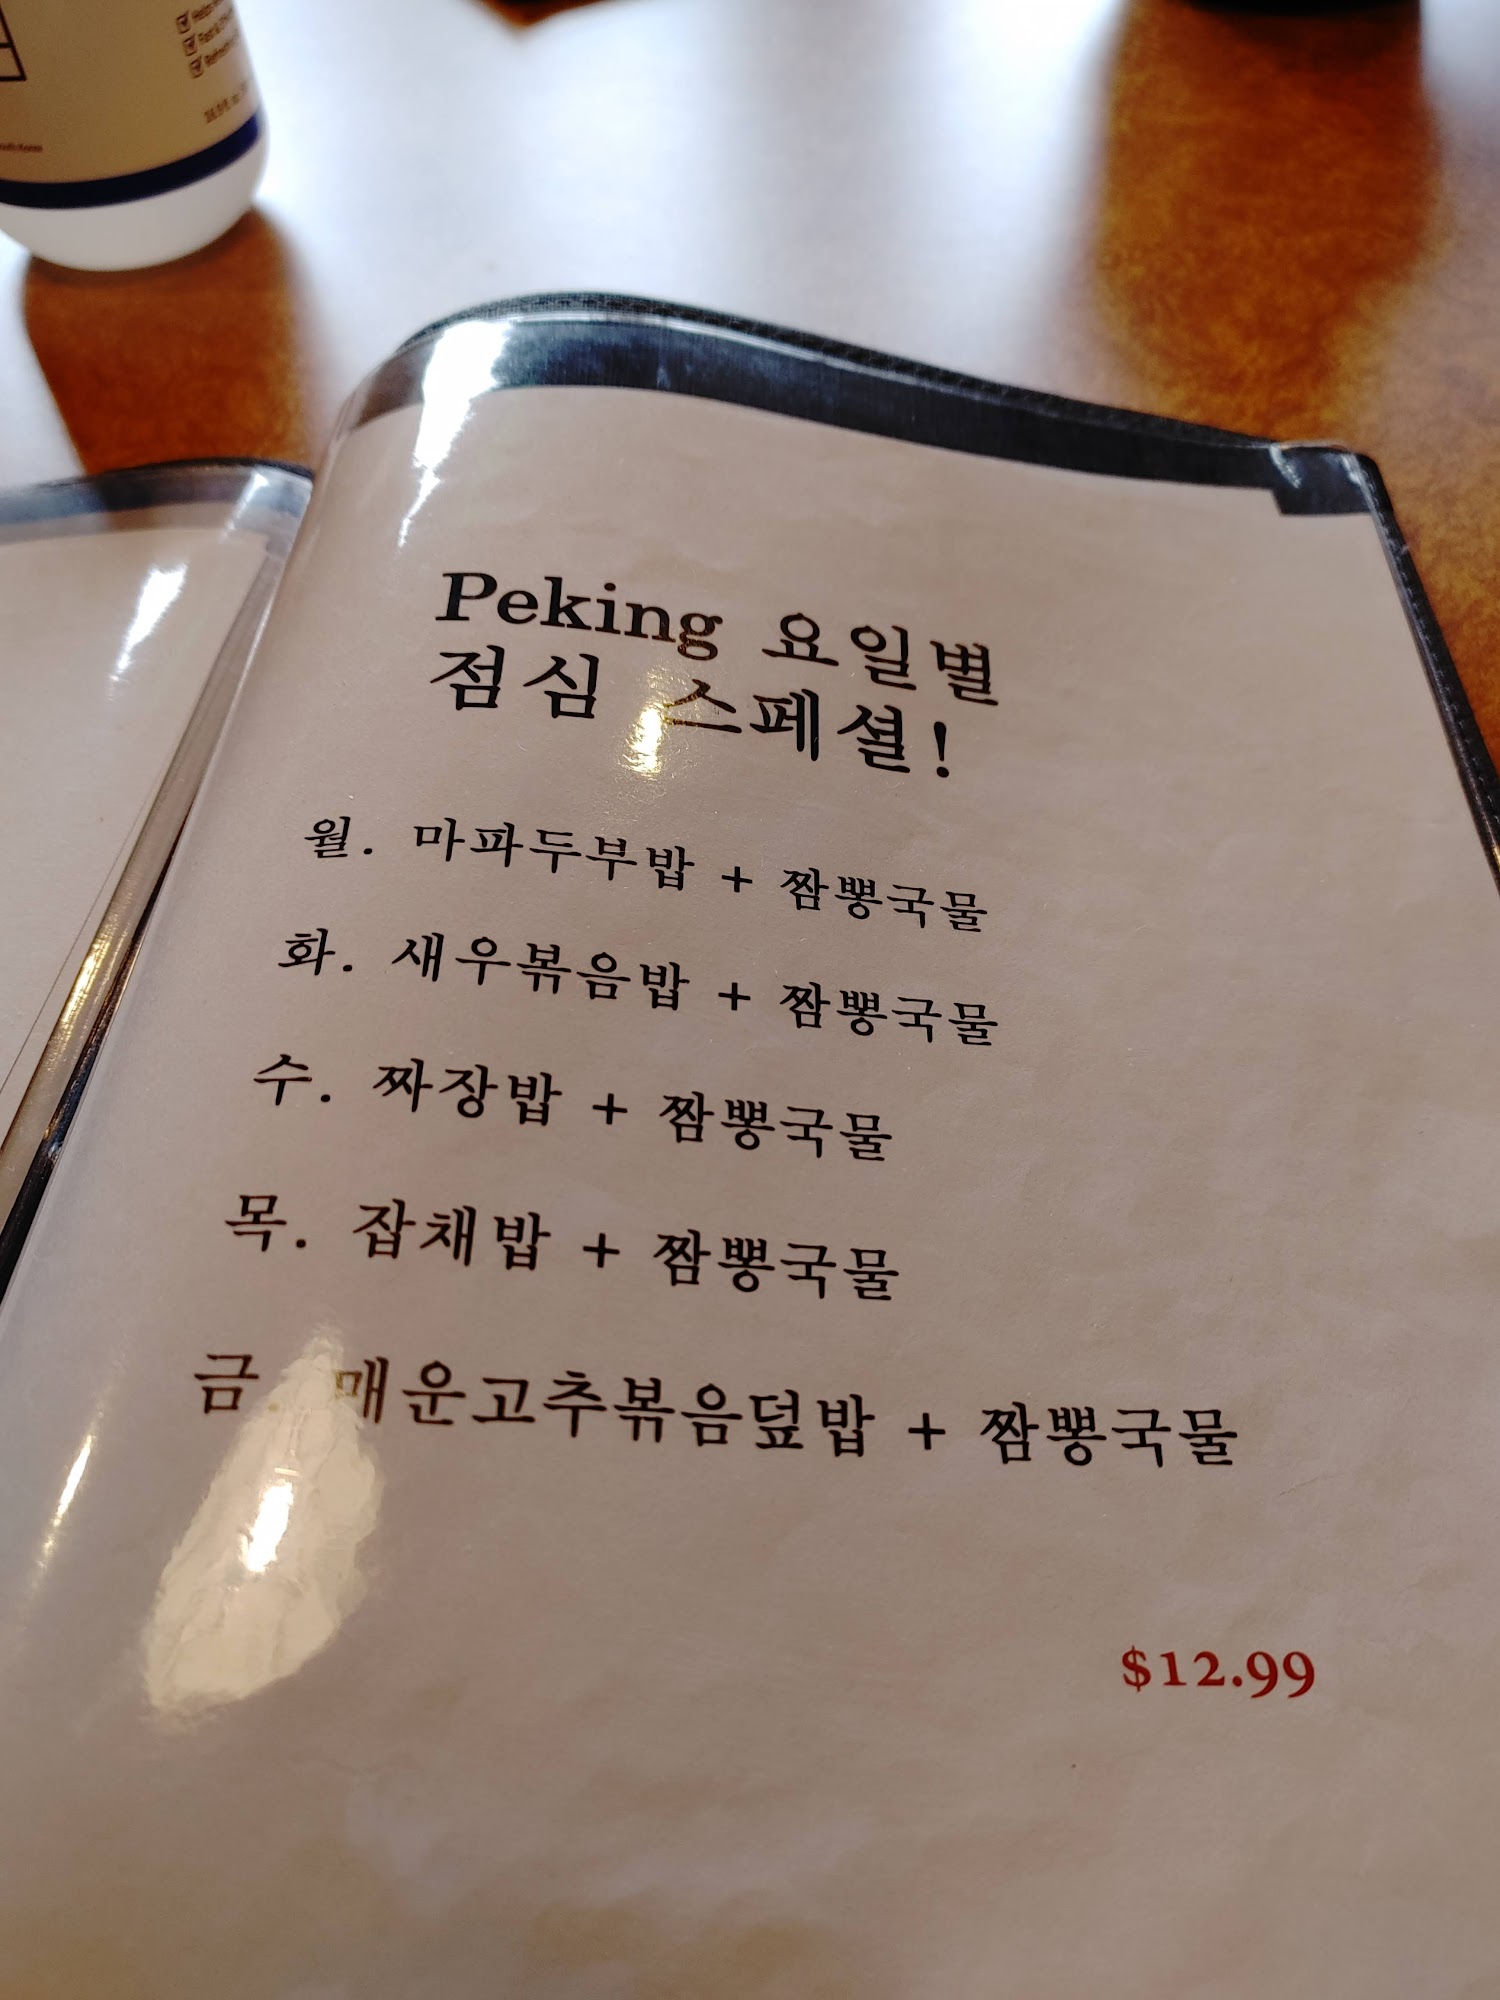 Peking 요일별
점심 스페셜!
월. 마파두부밥 + 짬뽕국물
화. 새우볶음밥 + 짬뽕국물
수. 짜장밥 + 짬뽕국물
목. 잡채밥 + 짬뽕국물
금. 매운고추볶음덮밥 + 짬뽕국물
$12.99